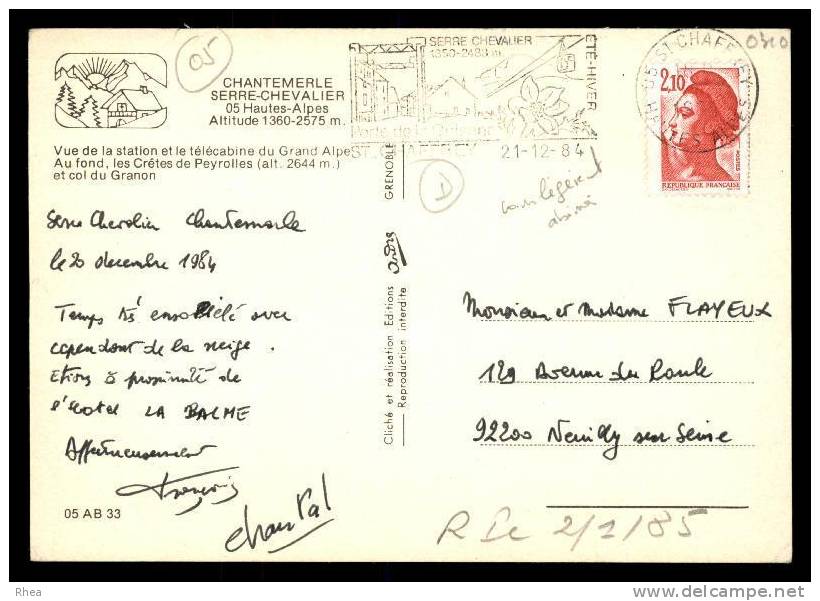 05
CHANTEMERLE
SERRE-CHEVALIER
05 Hautes-Alpes
Altitude 1360-2575 m.
Vue de la station et le télécabine du Grand Alpe
Au fond, les Crêtes de Peyrolles (alt. 2644 m.)
et col du Granon
Serre Chevalier Chantemerle
le 20 decembre 1984
Temps très ensoleillé avec
cependant de la neige.
Etions à proximité de
l'hotel LA BALME
Affectueusement
François
Chantal
05 AB 33
SERRE CHEVALIER
1350-2483 m
ÉTÉ-HIVER
Porte de la
ST CHAFFREY
21-12-84
05 ST CHAFFREY
HAUTES ALPES
0310
2,10
REPUBLIQUE FRANÇAISE
POSTES
D
coin légèrement
abimé
GRENOBLE
Cliché et réalisation Editions André
Reproduction interdite
Monsieur et Madame FLAYEUX
129 Avenue du Roule
92200 Neuilly sur Seine
2/1/85
Rhea
delcampe.net